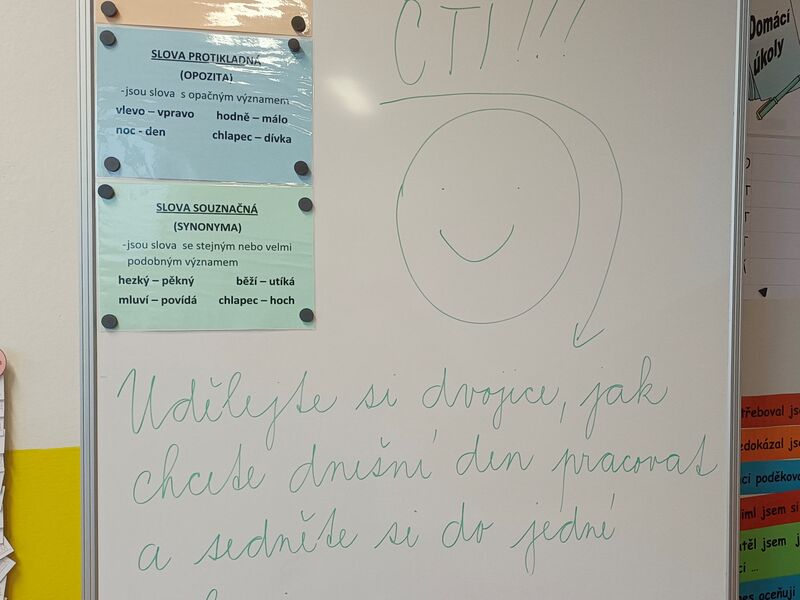 SLOVA PROTIKLADNÁ
(OPOZITA)
-jsou slova s opačným významem
vlevo – vpravo hodně – málo
noc - den chlapec – dívka
SLOVA SOUZNAČNÁ
(SYNONYMA)
-jsou slova se stejným nebo velmi
podobným významem
hezký – pěkný běží – utíká
mluví – povídá chlapec – hoch
ČTI!!!
Udělejte si dvojice, jak
chcete dnešní den pracovat
a sedněte si do jedné
Domácí
úkoly
třeboval jse
edokázal jse
cí poděkova
iml jsem si
těl jsem j
ci ...
nes oceňuji